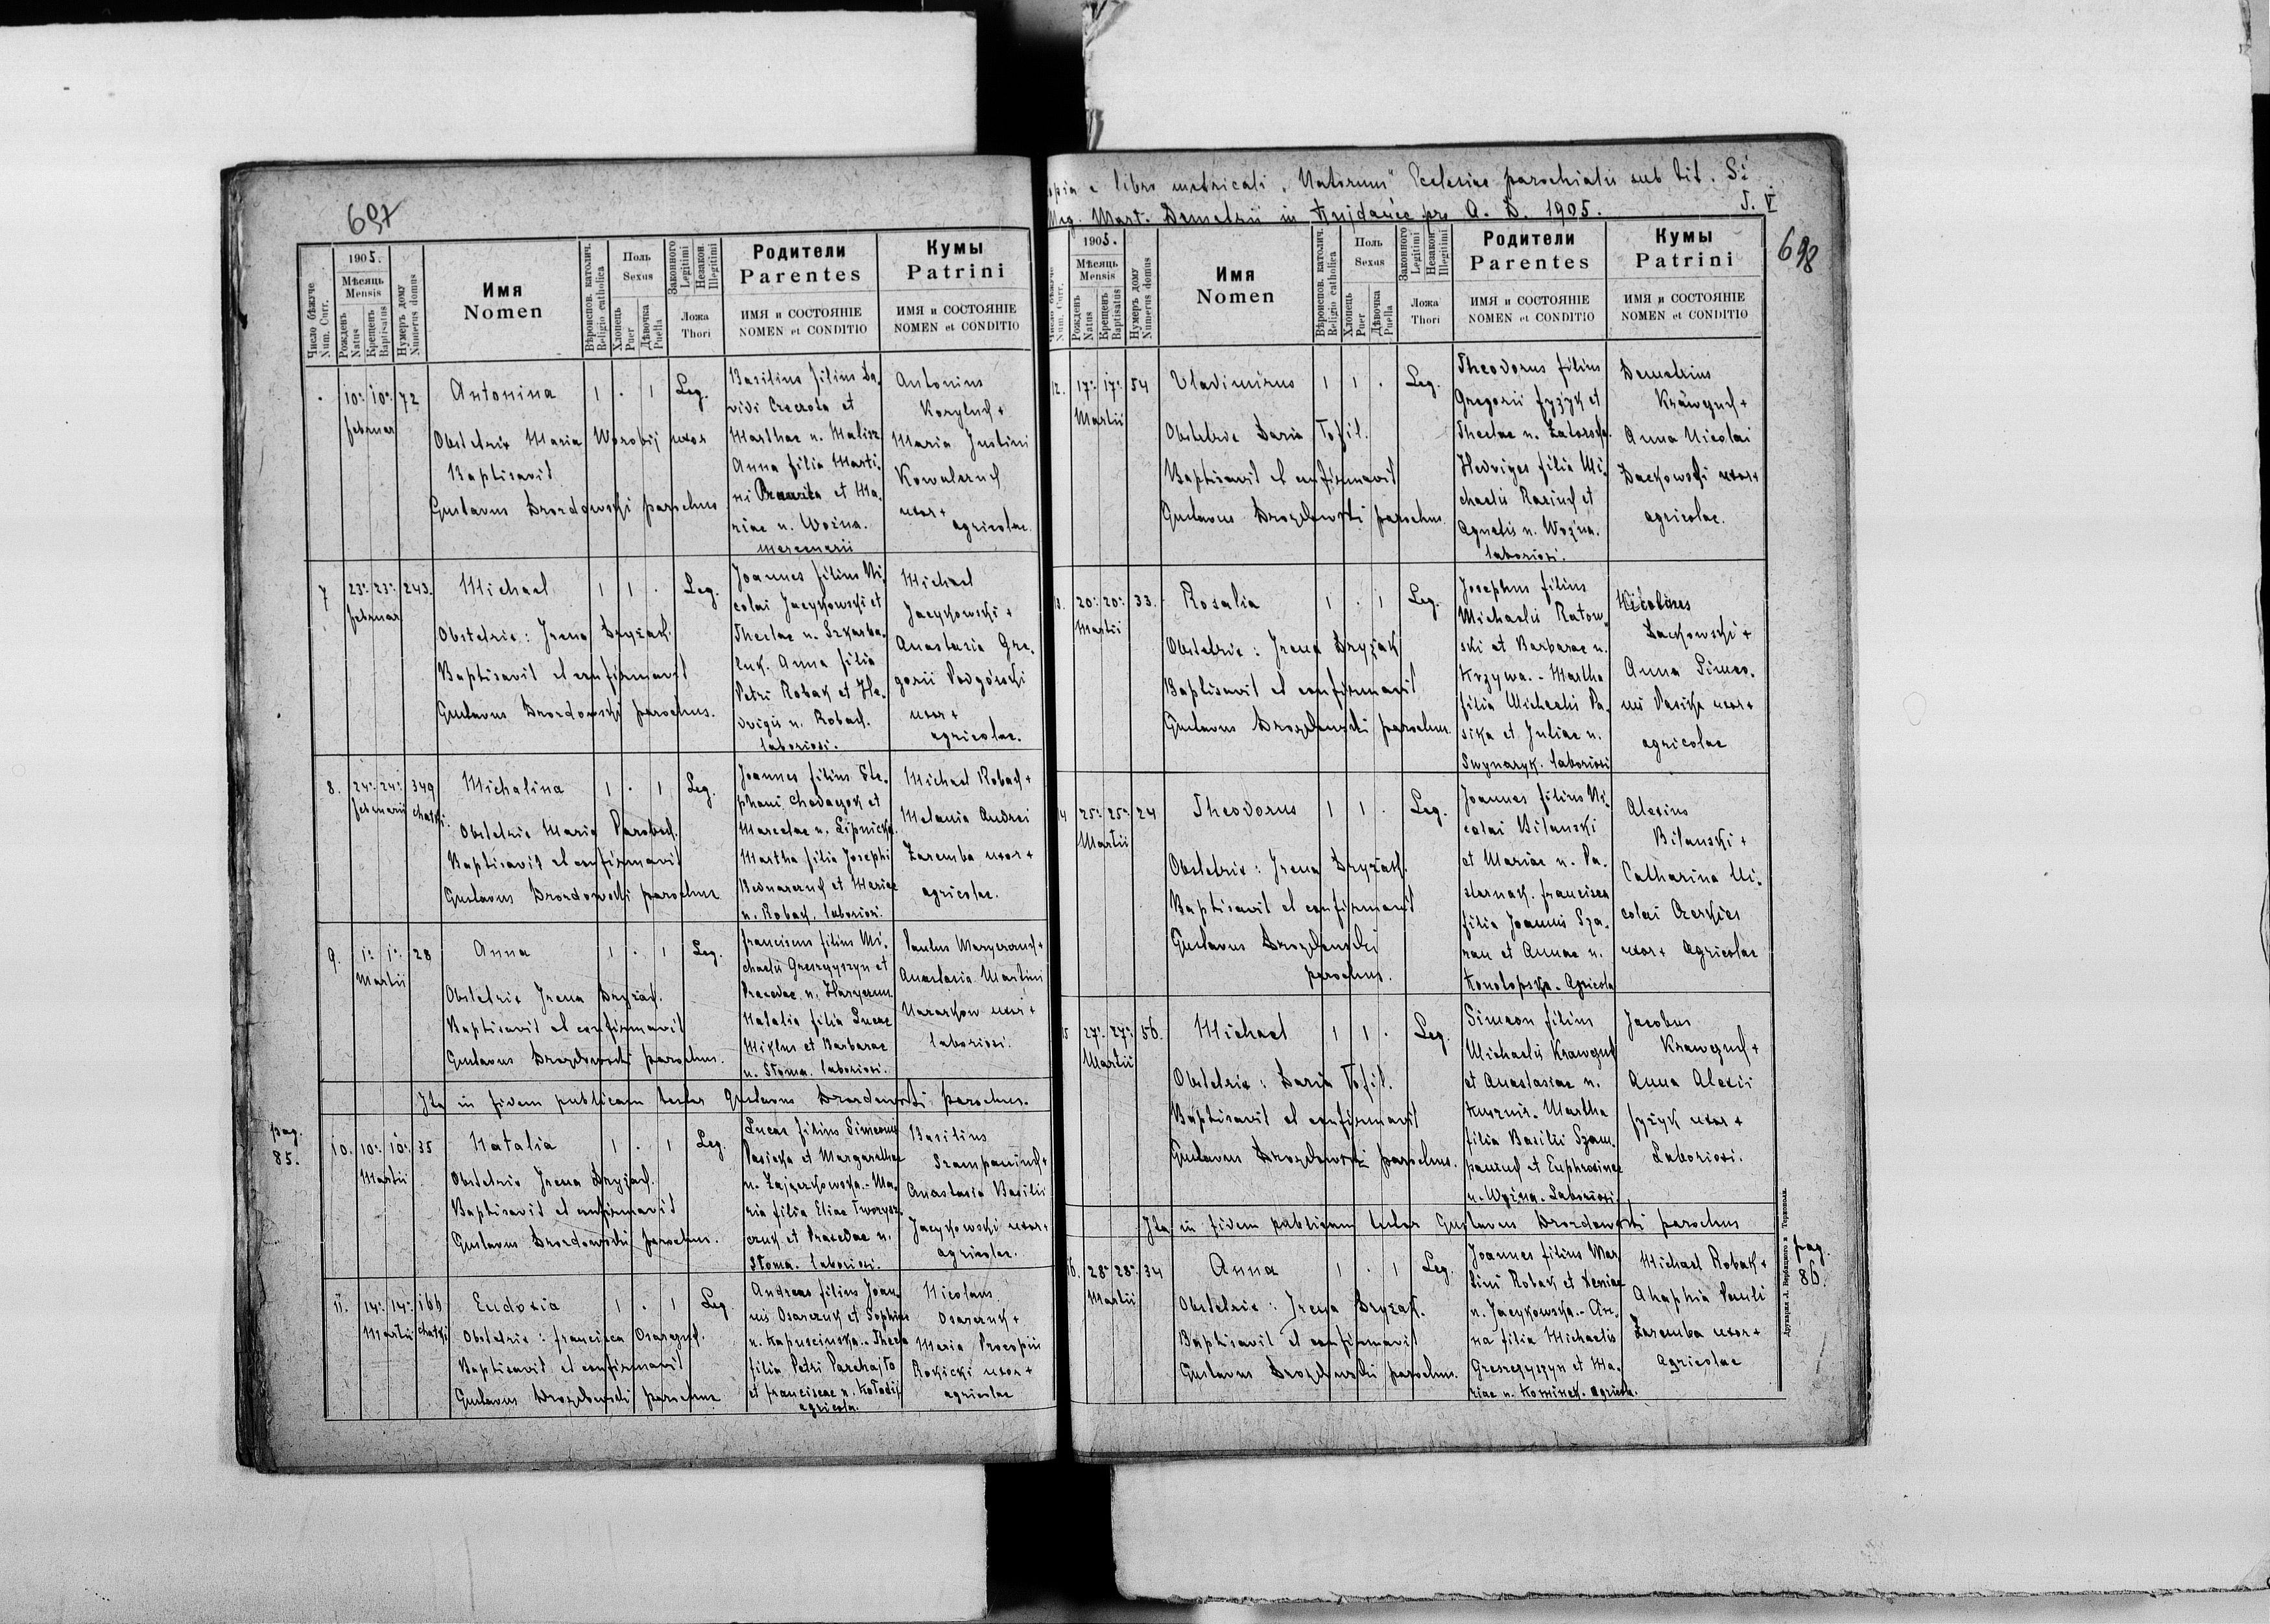 697
Число бѣжуче
Num. Curr.
1905.
Мѣсяць
Mensis
Рожденъ
Natus
Крещенъ
Baptisatus
Нумеръ дому
Numerus domus
Имя
Nomen
Вѣроиспов. католич.
Religio catholica
Поль
Sexus
Хлопець
Puer
Дѣвочка
Puella
Законного
Legitimi
Незакон.
Illegitimi
Ложа
Thori
Родители
Parentes
ИМЯ и СОСТОЯНІЕ
NOMEN et CONDITIO
Кумы
Patrini
ИМЯ и СОСТОЯНІЕ
NOMEN et CONDITIO
10. 10. 72
februar
Antonina
1 . 1 Leg.
Obstetrix Maria Worobij uxor
Baptisavit
Gustavus Drozdowski parochus
Basilius filius Da,
vidi et
Marthae n. Malisz
Anna filia Marti,
ni et Ma,
riae n. Woźna.
mercenarii
Antonius
+
Maria Justini
uxor +
agricolae.
7 23. 23. 243.
februar
Michael
1 1 . Leg.
Obstetrix: Irena Dryżak.
Baptisavit et confirmavit
Gustavus Drozdowski parochus.
Joannes filius Ni,
colai Jacykowski et
Theclae n. Szkarba,
luk. Anna filia
Petri Robak et He,
dvigis n. Robak.
laboriosi.
Michael
Jacykowski +
Anastasia Gre,
gorii Podgórski
uxor +
agricolae.
8. 24. 24. 349
februarii chatki.
Michalina
1 . 1 Leg.
Obstetrix Maria Parobek.
Baptisavit et confirmavit
Gustavus Drozdowski parochus
Joannes filius Ste,
phani Chodaczok et
Marcelae n. Lipnicka.
Martha filia Josephi
Bednarczuk et Mariae
n. Robak. laboriosi.
Michael Robak +
Melania Andrei
Zaremba uxor +
agricolae.
9. 1. 1. 28
Martii
Anna
1 . 1 Leg.
Obstetrix Irena Dryżak.
Baptisavit et confirmavit
Gustavus Drozdowski parochus.
franciscus filius Mi,
chaelis Greszczyszyn et
Praxedae n.
Natalia filia Lucae
Miklus et Barbarae
n. Stoma. laboriosi.
Paulus +
Anastasia Martini
uxor +
laboriosi.
Ita in fidem publicam testor Gustavus Drozdowski parochus.
pag.
85.
10. 10. 10. 35
Martii
Natalia
1 . 1 Leg.
Obstetrix Irena Dryżak.
Baptisavit et confirmavit
Gustavus Drozdowski parochus.
Lucas filius Simeonis
Pasieka et Margarethae
n. Zajączkowska. - Ma,
ria filia Eliae Tworysz,
czuk et Praxedae n.
Stoma. laboriosi.
Basilius
Szampaniuk +
Anastasia Basilii
Jacykowski uxor +
agricolae.
11. 14. 14. 166
Martii chatki
Eudoxia
1 . 1 Leg.
Obstetrix: francisca Osarczuk.
Baptisavit et confirmavit
Gustavus Drozdowski parochus
Andreas filius Joan,
nis Osarczuk et Sophiae
n. Kapuscinska. - Thecla
filia Petri Parchajło
et franciscae n. Kołodij
agricola.
Nicolaus
Osarczuk +
Maria Procopii
Rokicki uxor +
agricolae
Copia e libro metricali "Natorum" Ecclesiae parochialis sub tit. Sti
Meg. Mart. Demetrii in pro A. D. 1905.
T. V
698
Число бѣжуче
Num. Curr.
1905.
Мѣсяць
Mensis
Рожденъ
Natus
Крещенъ
Baptisatus
Нумеръ дому
Numerus domus
Имя
Nomen
Вѣроиспов. католич.
Religio catholica
Поль
Sexus
Хлопець
Puer
Дѣвочка
Puella
Законного
Legitimi
Незакон.
Illegitimi
Ложа
Thori
Родители
Parentes
ИМЯ и СОСТОЯНІЕ
NOMEN et CONDITIO
Кумы
Patrini
ИМЯ и СОСТОЯНІЕ
NOMEN et CONDITIO
12. 17. 17. 54
Martii
Vladimirus
1 1 . Leg.
Obstetrix Daria Tofil.
Baptisavit et confirmavit
Gustavus Drozdowski parochus.
Theodorus filius
Gregorii fyzyk et
Theclae n. Zatorska.
Hedviges filia Mi,
chaelis et
Agnetis n. Woźna.
laboriosi.
Demetrius
Krawczuk +
Anna Nicolai
Dackowski uxor +
agricolae.
13. 20. 20. 33.
Martii
Rosalia
1 . 1 Leg.
Obstetrix: Irena Dryżak
Baptisavit et confirmavit
Gustavus Drozdowski parochus.
Josephus filius
Michaelis Ratow,
ski et Barbarae n.
Krzywa. - Martha
filia Michaelis Pa,
sika et Juliae n.
Swynaryk. laboriosi
Nicolaus
Dackowski +
Anna Simeo,
nis uxor +
agricolae
14 25. 25. 24
Martii
Theodorus
1 1 . Leg.
Obstetrix: Irena Dryżak.
Baptisavit et confirmavit
Gustavus Drozdowski
parochus.
Joannes filius Ni,
colai Bilanski
et Mariae n. Pa,
sternak. francisca
filia Joannis Sza,
ran et Annae n.
Konolopska. Agricola
Alexius
Bilanski +
Catharina Ni,
colai
uxor + Agricolae
15 27. 27. 56.
Martii
Michael
1 1 . Leg.
Obstetrix: Daria Tofil.
Baptisavit et confirmavit
Gustavus Drozdowski parochus.
Simeon filius
Michaelis Krawczuk
et Anastasiae n.
Martha
filia Basilii Szam,
paniuk et Euphrosinae
n. Woźna. Laboriosi.
Jacobus
Krawczuk +
Anna Alexii
fyzyk uxor +
Laboriosi.
Ita in fidem publicam testor Gustavus Drozdowski parochus
pag.
86.
16. 28. 28. 34
Martii
Anna
1 . 1 Leg.
Obstetrix: Irena Dryżak.
Baptisavit et confirmavit
Gustavus Drozdowski parochus.
Joannes filius Mar
tini Robak et Xeniae
n. Jacykowska. - An,
na filia Michaelis
Greszczyszyn et Ma,
riae n. Kominek. agricola.
Michael Robak +
Ahaphia Pauli
Zaremba uxor +
agricolae
Друкарня Л. Вербицкого в Тернополи.